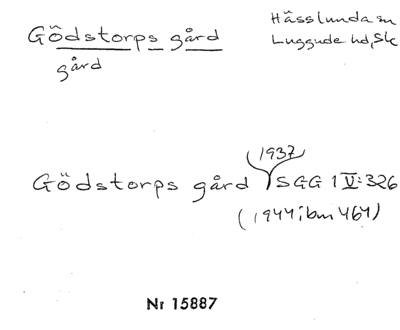 Gödstorps gård
gård
Hässlunda sn
Luggude hd, Sk
(1937)
Gödstorps gård SGG 1 V:326
(1944; bm 464)
Nr 15887